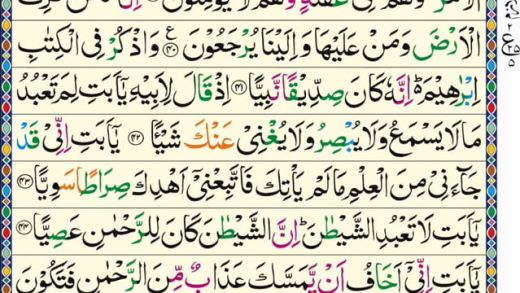 الْاَمْرُ وَهُمْ فِیْ غَفْلَةٍ وَّهُمْ لَا یُؤْمِنُوْنَ ﴿۳۹﴾ اِنَّا نَحْنُ نَرِثُ
الْاَرْضَ وَمَنْ عَلَیْهَا وَ اِلَیْنَا یُرْجَعُوْنَ ﴿۴۰﴾ ع وَ اذْكُرْ فِی الْكِتٰبِ
اِبْرٰهِیْمَ ؕ۬ اِنَّهٗ كَانَ صِدِّیْقًا نَّبِیًّا ﴿۴۱﴾ اِذْ قَالَ لِاَبِیْهِ یٰۤاَبَتِ لِمَ تَعْبُدُ
مَا لَا یَسْمَعُ وَلَا یُبْصِرُ وَلَا یُغْنِیْ عَنْكَ شَیْـًٔا ﴿۴۲﴾ یٰۤاَبَتِ اِنِّیْ قَدْ
جَآءَنِیْ مِنَ الْعِلْمِ مَا لَمْ یَاْتِكَ فَاتَّبِعْنِیْۤ اَهْدِكَ صِرَاطًا سَوِیًّا ﴿۴۳﴾
یٰۤاَبَتِ لَا تَعْبُدِ الشَّیْطٰنَ ؕ اِنَّ الشَّیْطٰنَ كَانَ لِلرَّحْمٰنِ عَصِیًّا ﴿۴۴﴾
یٰۤاَبَتِ اِنِّیْۤ اَخَافُ اَنْ یَّمَسَّكَ عَذَابٌ مِّنَ الرَّحْمٰنِ فَتَكُوْنَ